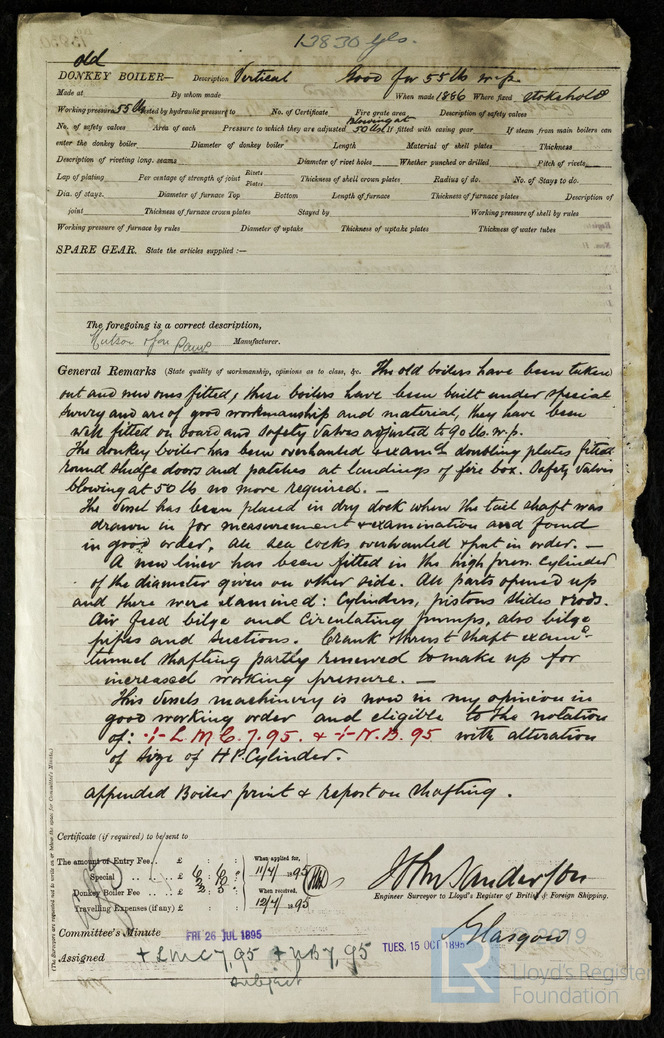 13830 gls.
old
DONKEY BOILER— Description Vertical Good for 55 lbs w.p.
Made at By whom made When made 1886 Where fixed stokehold
Working pressure 55 lbs tested by hydraulic pressure to No. of Certificate Fire grate area Description of safety valves
No. of safety valves Area of each Pressure to which they are adjusted blowing at 50 lbs If fitted with easing gear If steam from main boilers can
enter the donkey boiler Diameter of donkey boiler Length Material of shell plates Thickness
Description of riveting long. seams Diameter of rivet holes Whether punched or drilled Pitch of rivets
Lap of plating Per centage of strength of joint Rivets Plates Thickness of shell crown plates Radius of do. No. of Stays to do.
Dia. of stays. Diameter of furnace Top Bottom Length of furnace Thickness of furnace plates Description of
joint Thickness of furnace crown plates Stayed by Working pressure of shell by rules
Working pressure of furnace by rules Diameter of uptake Thickness of uptake plates Thickness of water tubes
SPARE GEAR. State the articles supplied :—
The foregoing is a correct description,
Manufacturer.
General Remarks (State quality of workmanship, opinions as to class, &c. The old boilers have been taken
out and new ones fitted, these boilers have been built under special
survey and are of good workmanship and material, they have been
well fitted on board and safety valves adjusted to 90 lbs. w.p.
The donkey boiler has been overhauled & examd doubling plates fitted
round sludge doors and patches at landings of fire box. Safety valves
blowing at 50 lbs no more required. —
The vessel has been placed in dry dock when the tail shaft was
drawn in for measurement & examination and found
in good order, all sea cocks overhauled & put in order. —
A new liner has been fitted in the high press. cylinder
of the diameter given on other side. All parts opened up
and there were examined: Cylinders, pistons slides & rods.
Air feed bilge and Circulating pumps, also bilge
pipes and suctions. Crank & thrust shaft examd.
tunnel shafting partly renewed to make up for
increased working pressure. —
This vessels machinery is now in my opinion in
good working order and eligible to the notation
of: + L.M.C. 7.95. & + N.B. 95 with alteration
of size of H.P. Cylinder.
appended Boiler print & report on shafting.
Certificate (if required) to be sent to
The amount of Entry Fee.. £ : : When applied for,
Special .. .. £ 6 : 6 : 11/7/1895
Donkey Boiler Fee .. £ When received,
Travelling Expenses (if any) £ 12/7/1895
John Sanderson
Engineer Surveyor to Lloyd's Register of British & Foreign Shipping.
Committee's Minute FRI 26 JUL 1895 TUES. 15 OCT 1895 Glasgow
Assigned + LMC 7,95 + NB 7,95
subject
(The Surveyors are requested not to write on or below the space for Committee's Minute.)
2019
LR
Lloyd's Register
Foundation